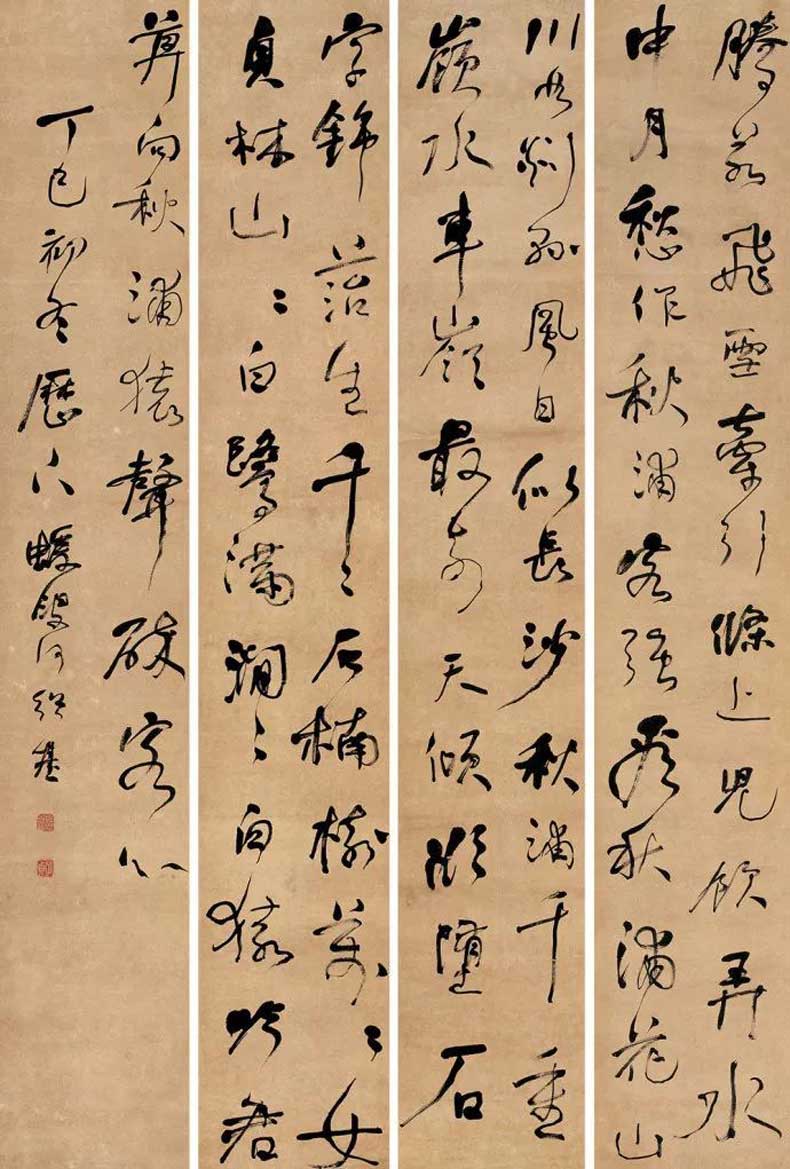 騰若飛雪牽引條上兒飲弄水
中月愁作秋浦客強看秋浦花山
川如剡縣風日似長沙秋浦千重
嶺水車嶺最奇天傾欲墮石
字錦落生千〻石楠樹萬〻女
貞林山〻白鷺滿澗〻白猿吟君
莫向秋浦猿聲碎客心
丁巳初冬歷下蝯叟何紹基